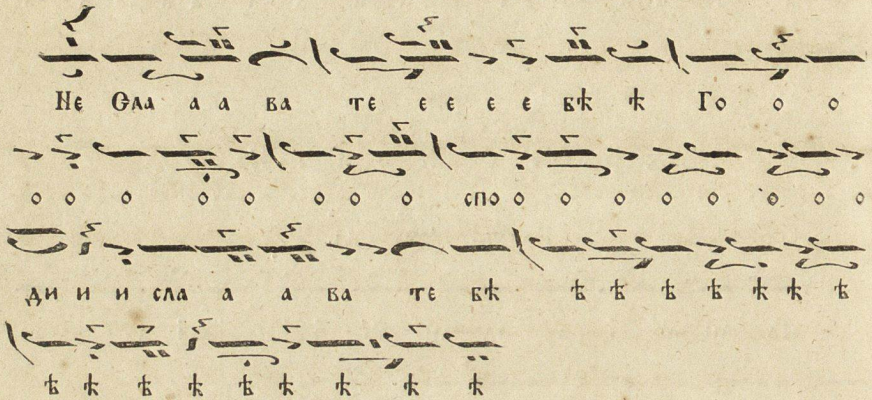 Не Сла а а ва те е е е е вѣ ѣ Го о о
о о о о о о о о спо о о о о о о о о о
ди и и сла а а ва те вѣ ѣ ѣ ѣ ѣ ѣ ѣ ѣ
ѣ ѣ ѣ ѣ ѣ ѣ ѣ ѣ ѣ